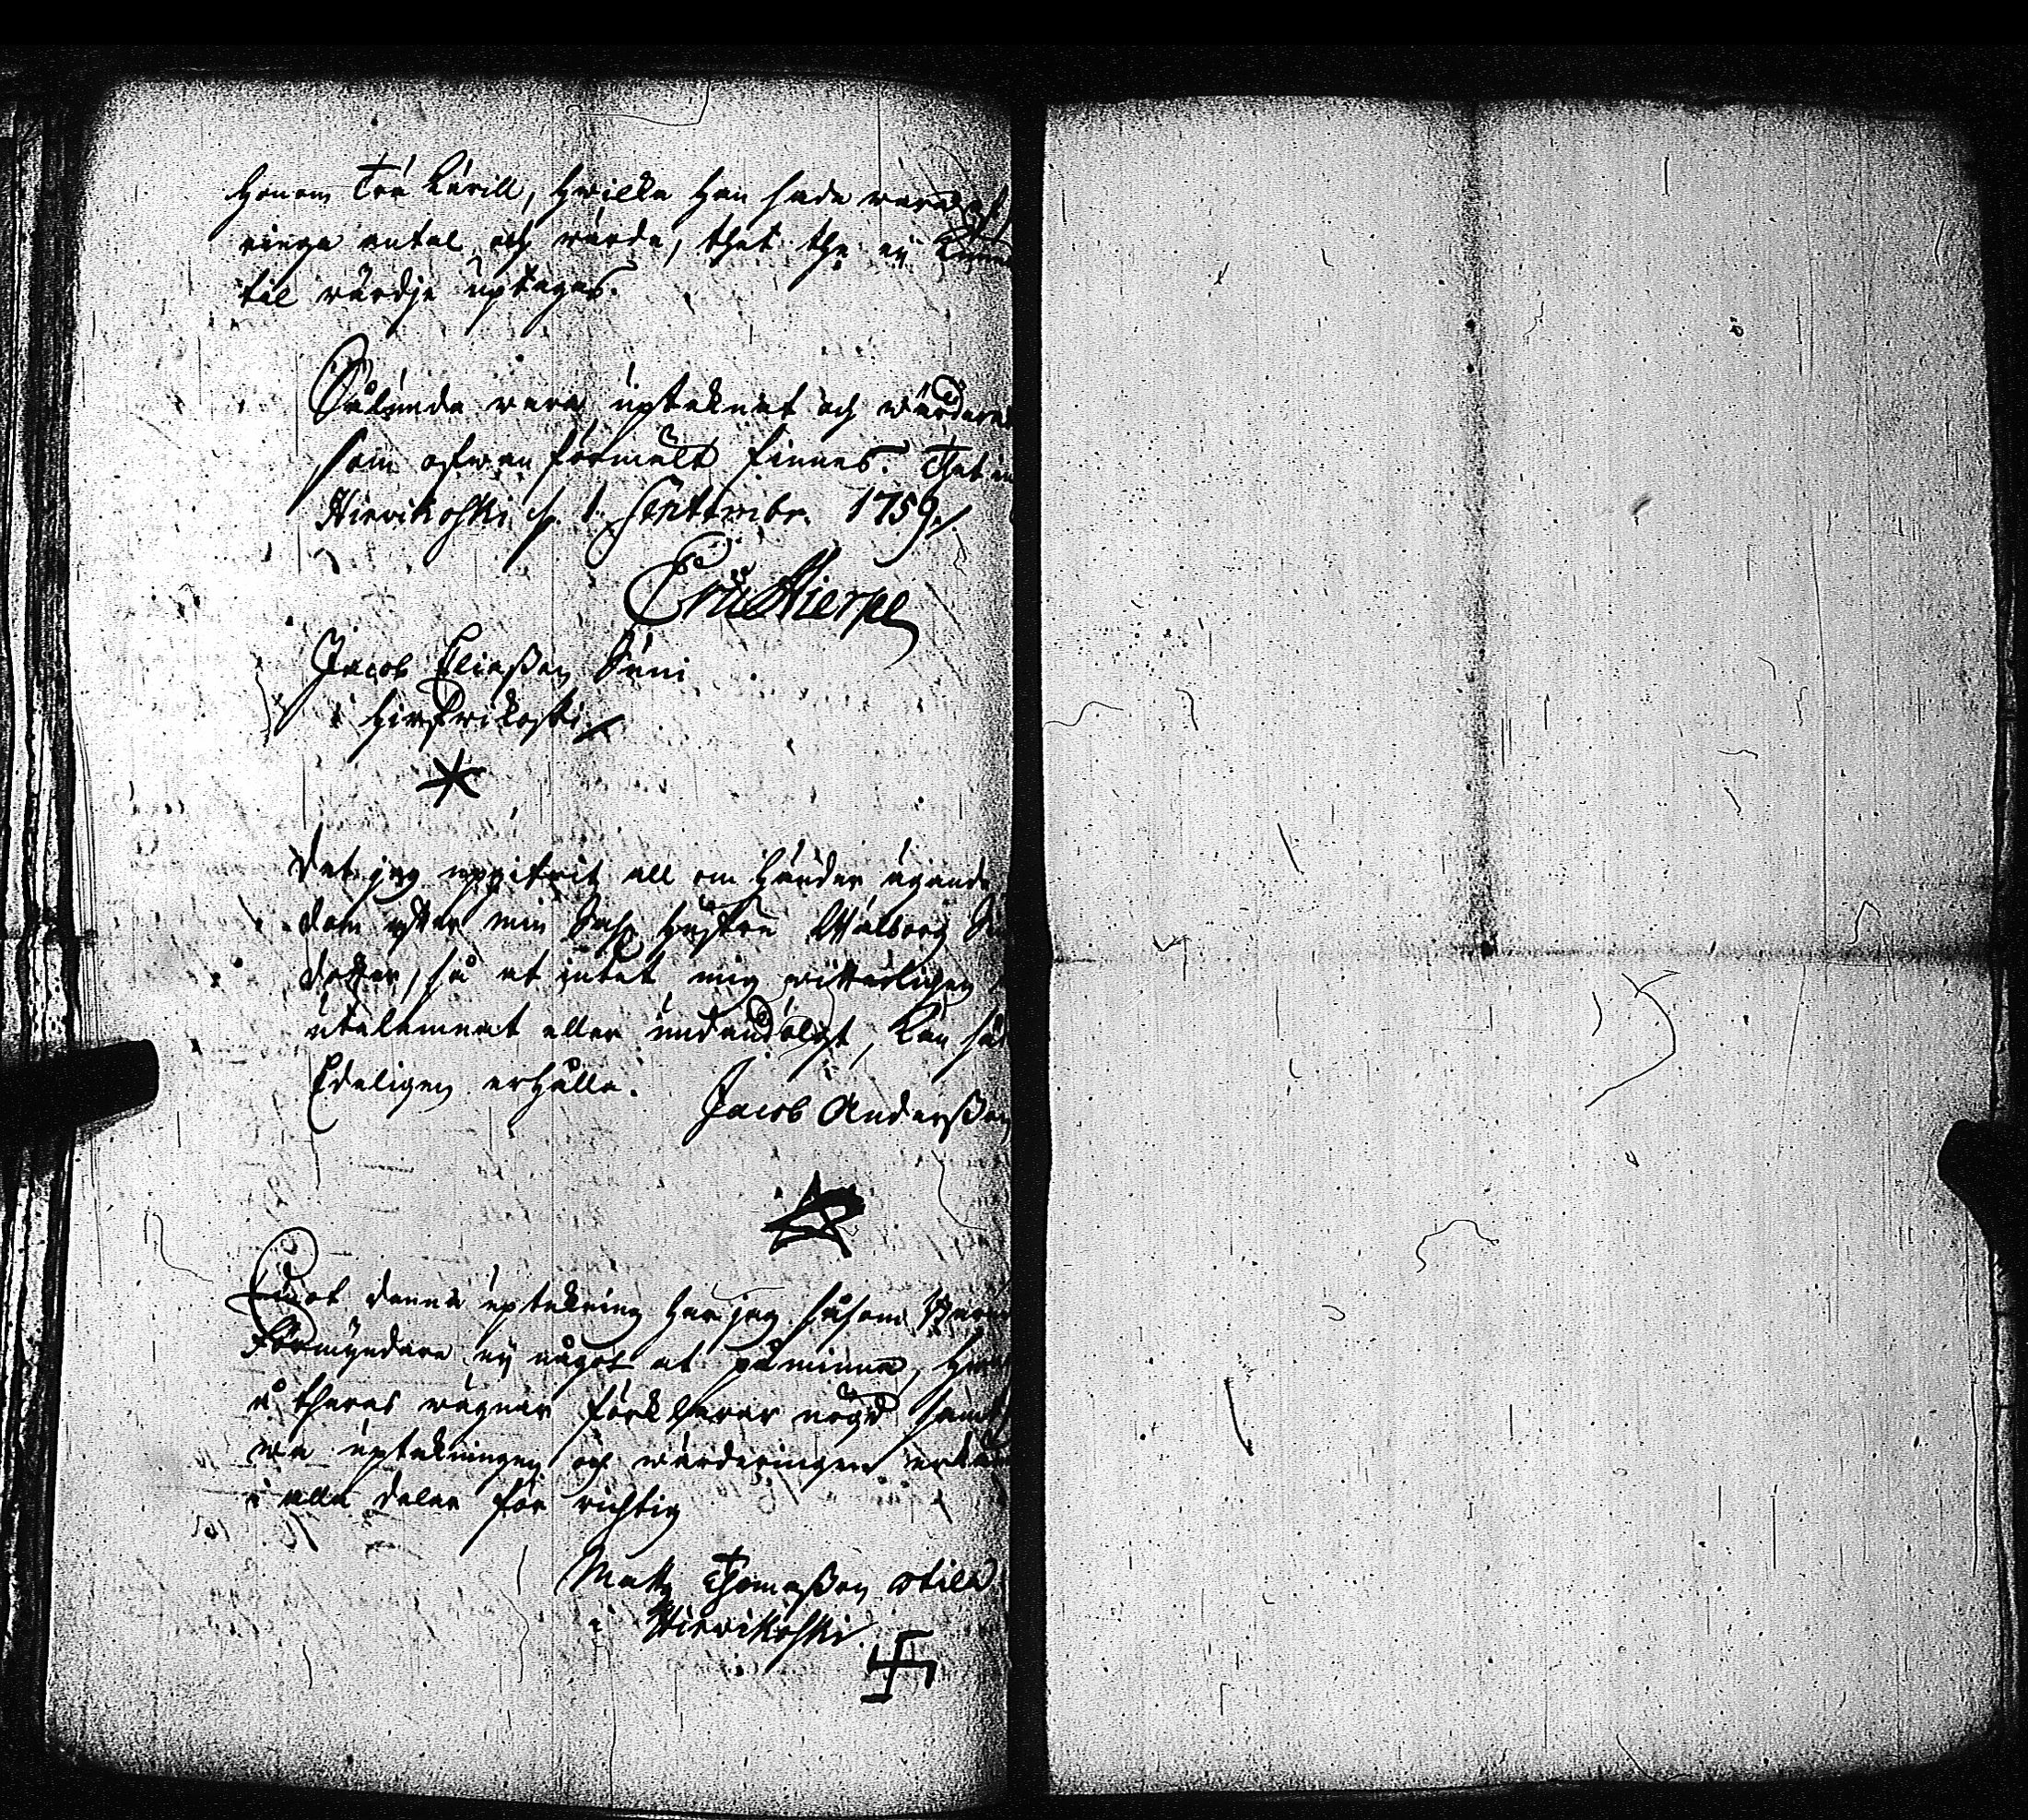 honom Trä Kärill, hwilka han sade wara af
ringa antal och wärde, thet the ej kunna
til wärdje uptagas.
Sålunda wara upteknat och wärderat
som ofwan förmält finnes. Thet
Hirvikoski d. 1. Septembr. 1759./.
Eric Hierpe
Jacob Eliaßon Süni
i Hirfwikoski
Det jag uppgifwit all om händer ägande
dom efter min Sahl. hustru Walborg
dotter, så at intet mig witterligen
utelemnat eller undandölgt, kan
Edeligen erhålla.
Jacob Anderßon
Emot denna uptekning har jag såsom Barn
Förmyndare ej något at påminna,
å theras wägnar förklarar nögd samt
uptekningen och wärderingen
i alla delar för richtig
Matts Thomaßon
i Hirvikoski